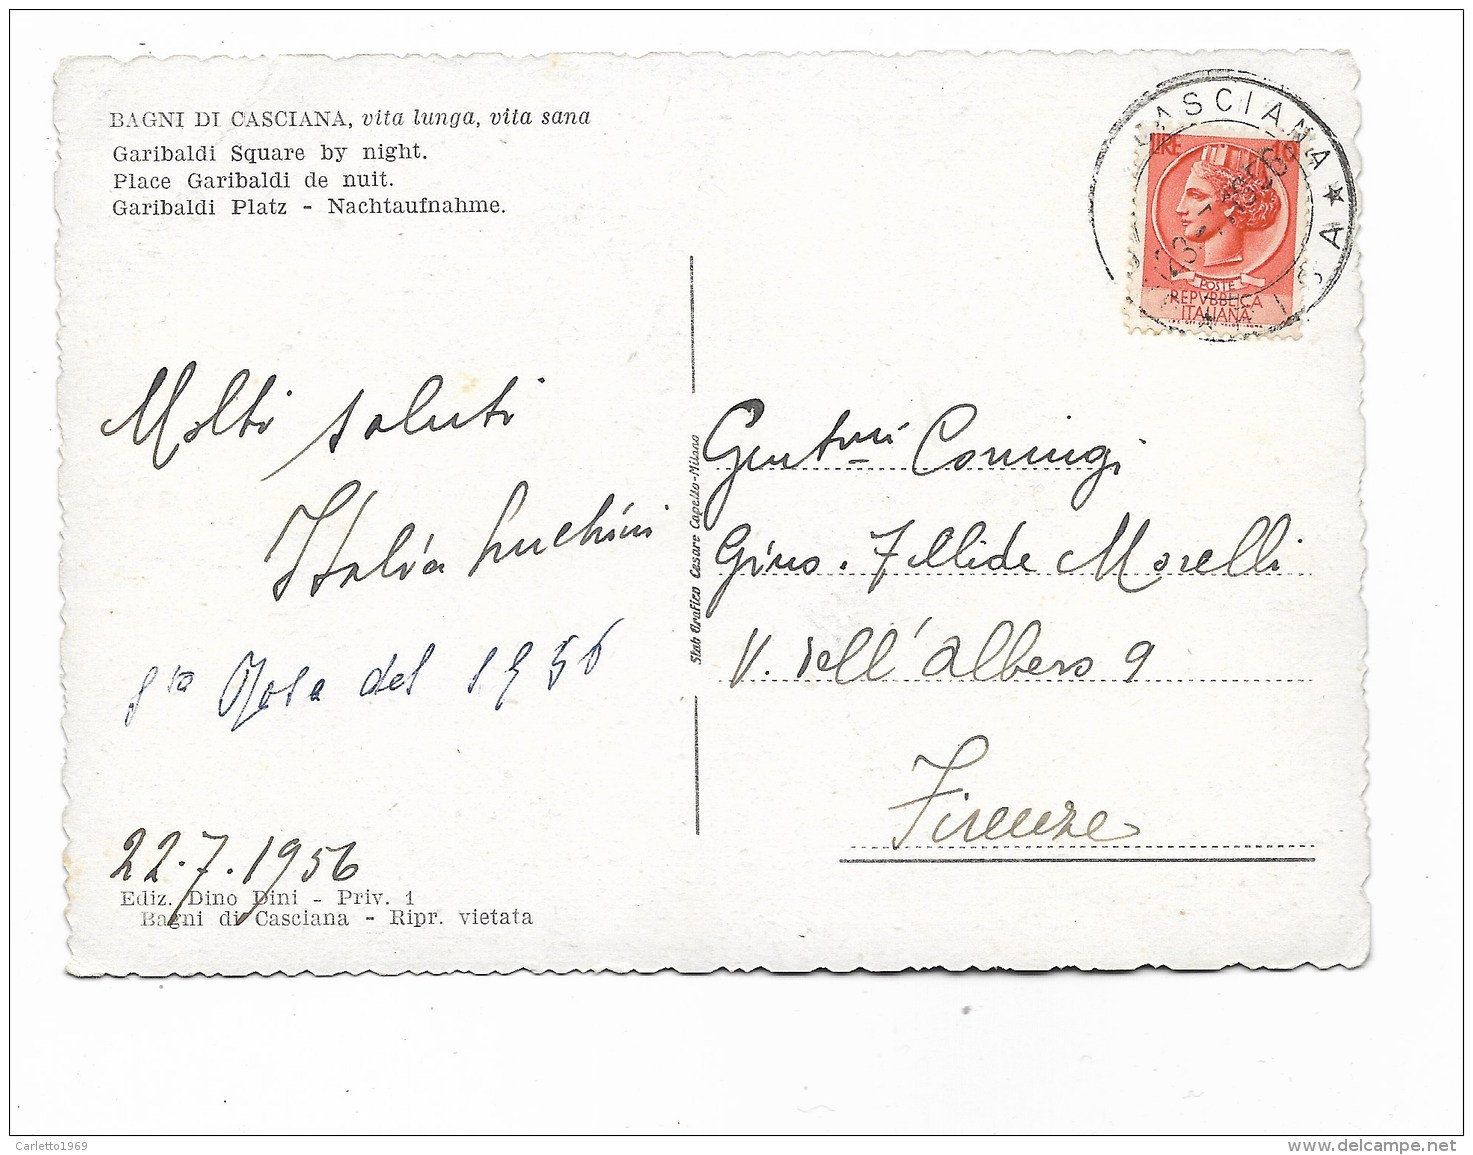 BAGNI DI CASCIANA, vita lunga, vita sana
Garibaldi Square by night.
Place Garibaldi de nuit.
Garibaldi Platz - Nachtaufnahme.
CASCIANA ★
LIRE
POSTE
REPVBBLICA
ITALIANA
Molti saluti
Italia Luchini
del 1956
22.7.1956
Ediz. Dino Dini - Priv. 1
Bagni di Casciana - Ripr. vietata
Stab Grafico Cesare Capello-Milano
Gent.mi Coniugi
Gino . Fellide Morelli
V. dell'albero 9
Firenze
Carletto1969
www.delcampe.net